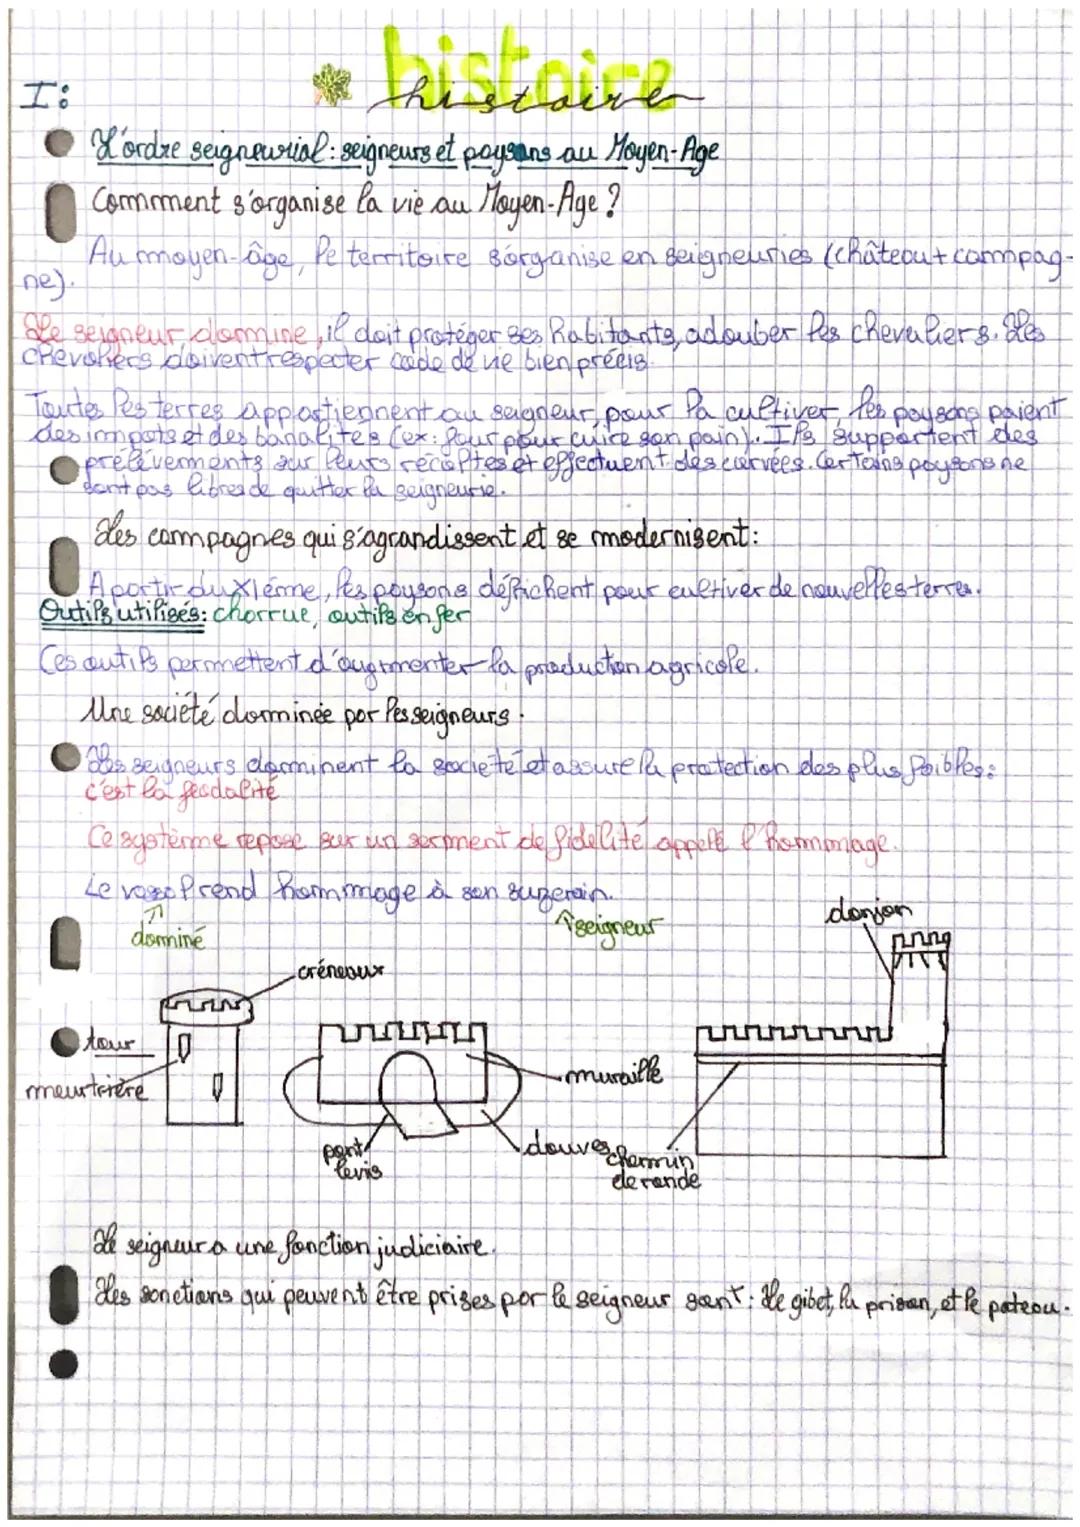 histoire
histoire
I:
L'ordre seigneurial : seigneurs et paysans au Moyen-Age
Commment s'organise la vie au Moyen-Age ?
Au moyen-âge, le territoire s'organise en seigneuries (château + campag-
ne).
Le seigneur domine, il doit protéger ses habitants, adouber les chevaliers. Les
chevaliers doivent respecter code de vie bien précis.
Toutes les terres appartiennent au seigneur, pour la cultiver, les paysans paient
des impots et des banalités (ex: four pour cuire son pain). Ils supportent des
prélèvements sur leurs récoltes et effectuent des corvées. Certains paysans ne
sont pas libres de quitter la seigneurie.
Les campagnes qui s'agrandissent et se modernisent :
A partir du XIème, les paysans défrichent pour cultiver de nouvelles terres.
Outils utilisés : charrue, outils en fer
Ces outils permettent d'augmenter la production agricole.
Une société dominée par les seigneurs.
Les seigneurs dominent la société et assure la protection des plus faibles :
c'est la féodalité
Ce système repose sur un serment de fidélité appelé l'hommage.
Le vassal rend hommage à son suzerain.
dominé
seigneur
donjon
créneaux
tour
meurtrière
muraille
pont-
levis
douves
chemin
de ronde
Le seigneur a une fonction judiciaire.
Les sanctions qui peuvent être prises par le seigneur sont : le gibet, la prison, et le poteau.